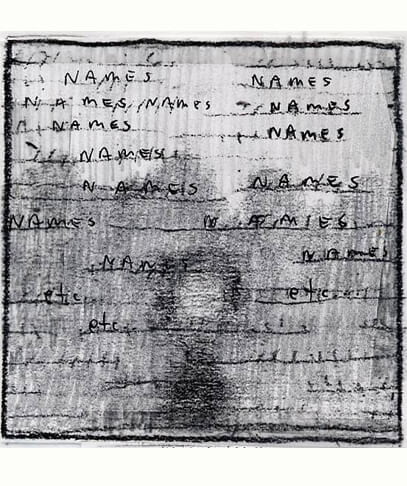 NAMES NAMES
NAMES, NAMES NAMES
NAMES
NAMES
NAMES
NAMES NAMES
NAMES NAMES
NAMES NAMES
etc. etc.
etc.